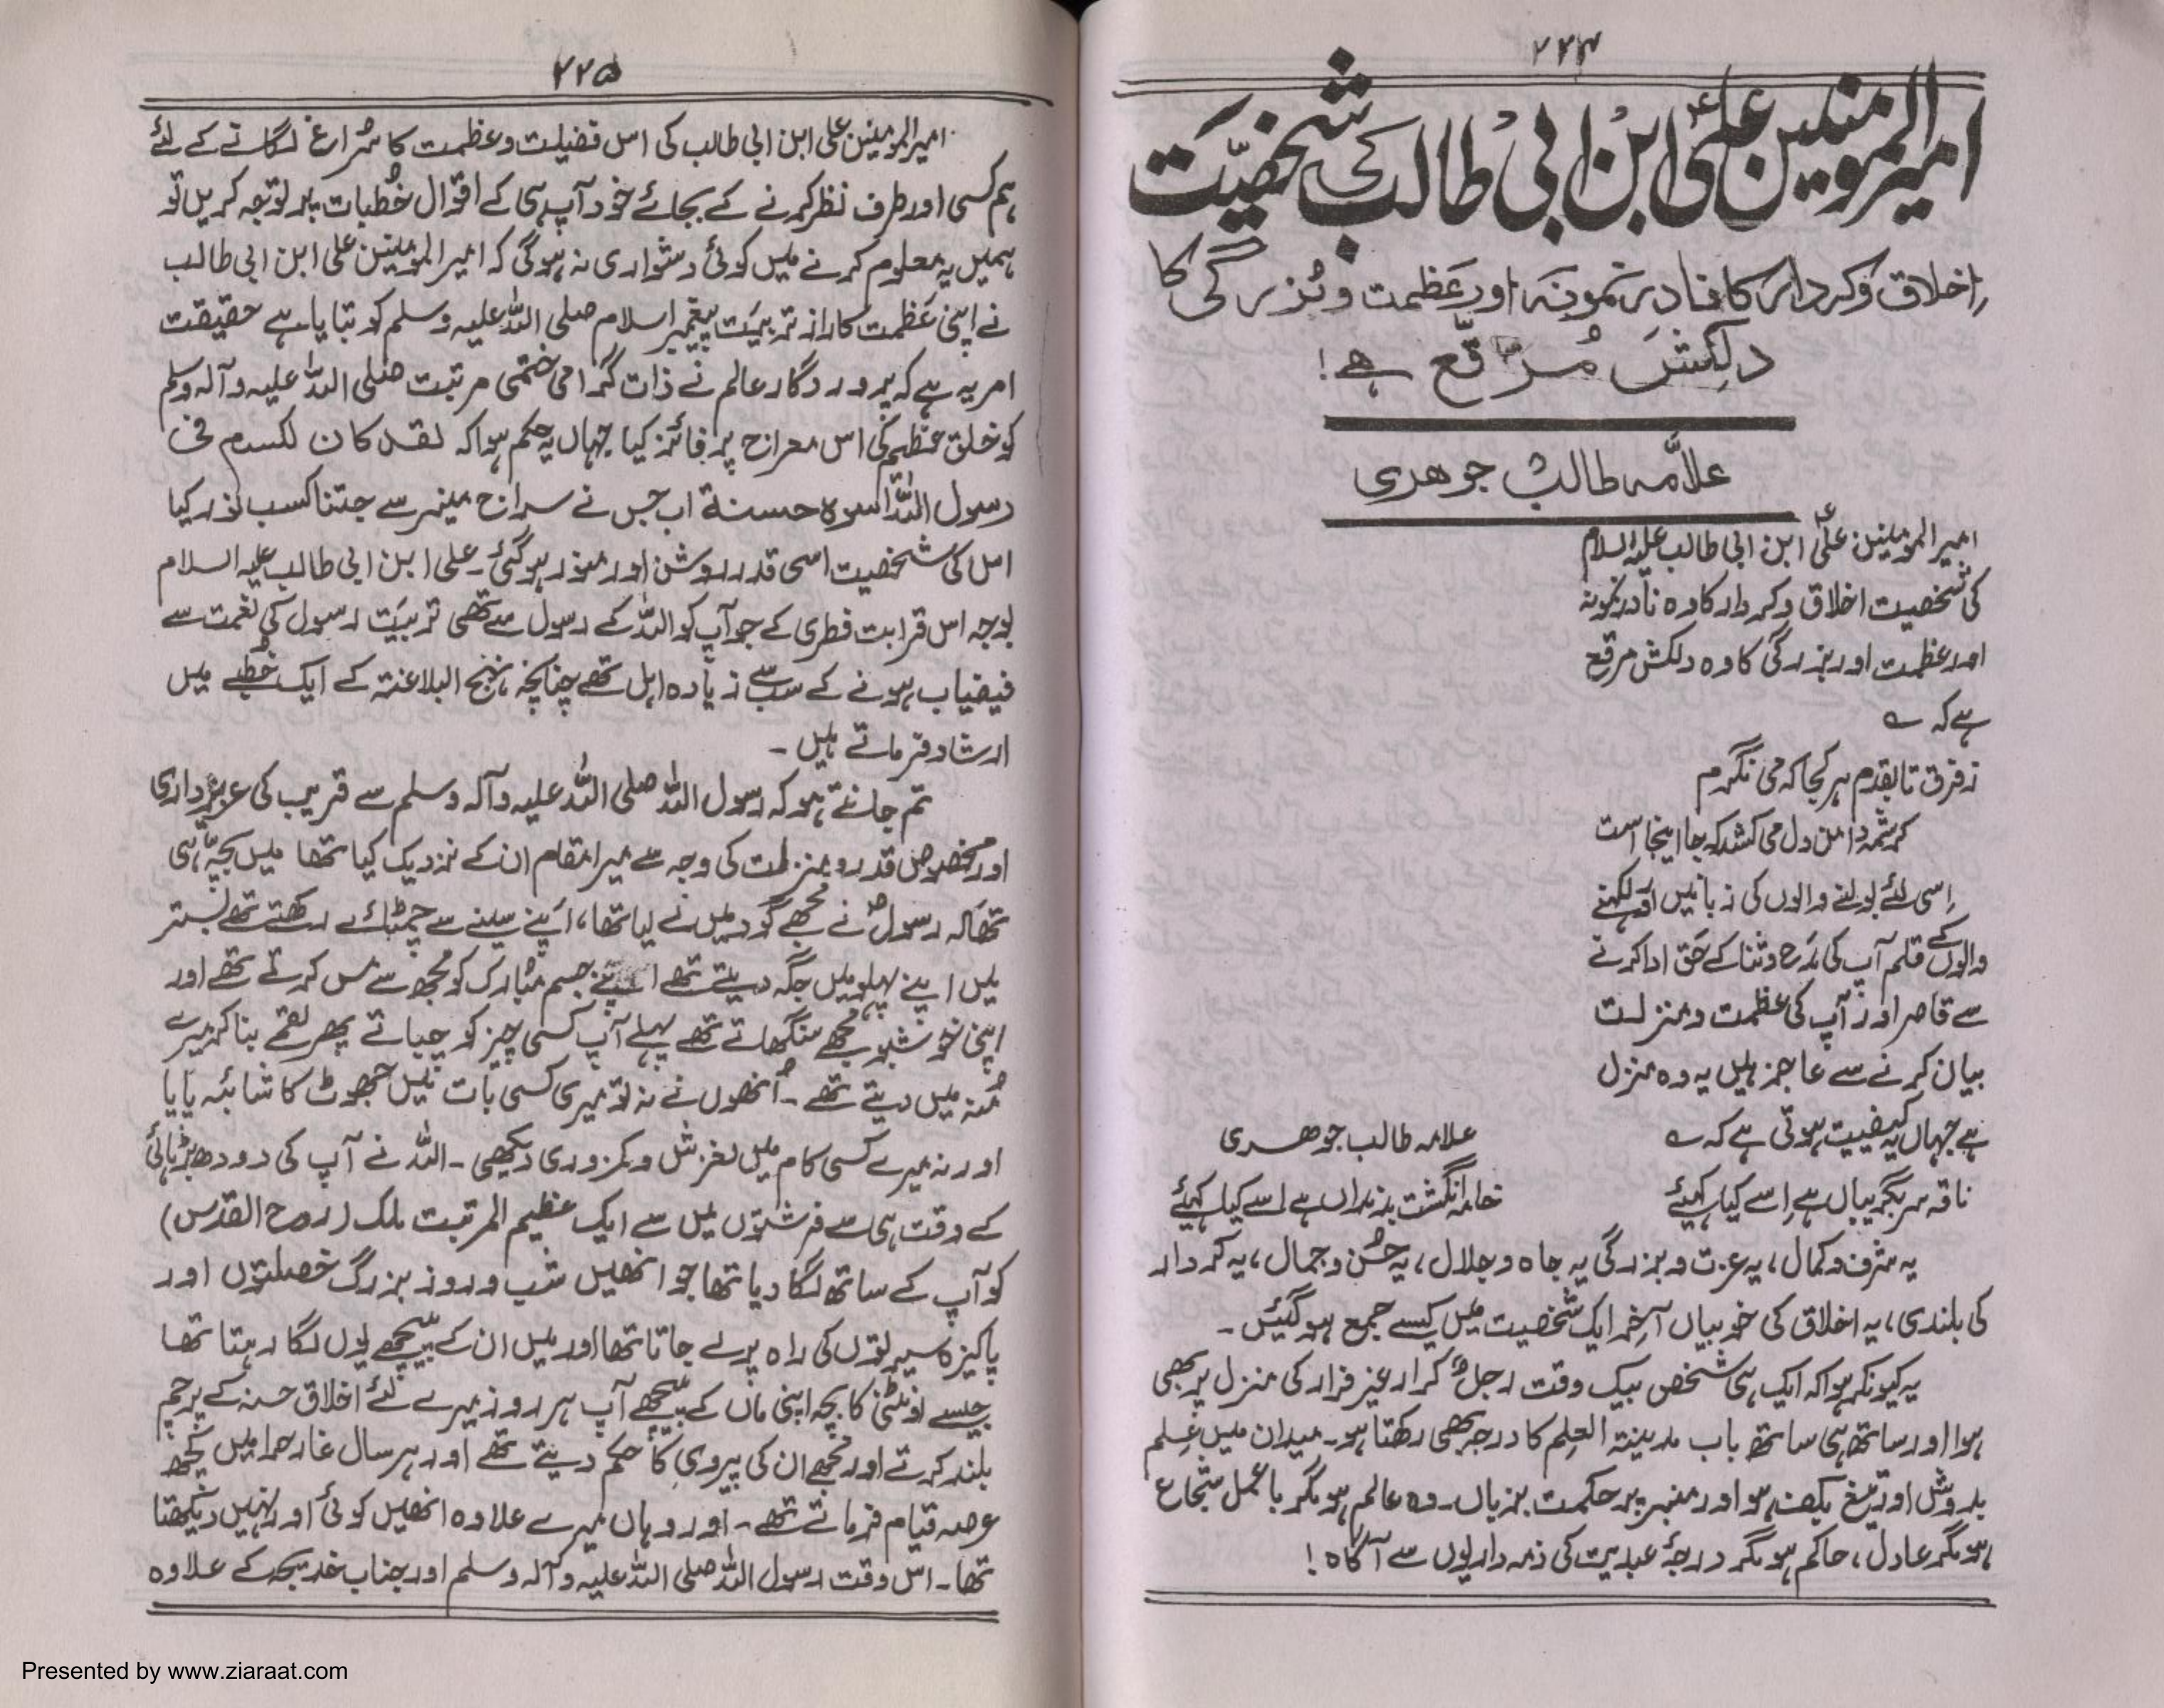 ۲۲۴
امیرالمومنین علیؑ ابن ابی طالب کی شخصیت
اخلاق و کردار کا نادر نمونہ اور عظمت و بزرگی کا
دلکش مرقّع ہے!
علامہ طالب جوہری
امیر المومنین علیؑ ابن ابی طالب علیہ السلام
کی شخصیت اخلاق و کردار کا وہ نادر نمونہ
اور عظمت اور بزرگی کا وہ دلکش مرقع
ہے کہ ؎
ز فرق تا بقدم ہر کجا کہ می نگرم
کرشمہ دامن دل می کشد کہ جا اینجا است
اسی لئے بولنے والوں کی زبانیں اور لکھنے
والوں کے قلم آپ کی مدح و ثنا کے حق ادا کرنے
سے قاصر اور آپ کی عظمت و منزلت
بیان کرنے سے عاجز ہیں یہ وہ منزل
ہے جہاں یہ کیفیت ہوتی ہے کہ ؎
علامہ طالب جوہری
ناقہ سر بگریباں ہے اسے کیا کہیئے
خامہ انگشت بدنداں ہے اسے کیا کہیئے
یہ شرف و کمال، یہ عزت و بزرگی یہ جاہ و جلال، یہ حُسن و جمال، یہ کردار
کی بلندی، یہ اخلاق کی خوبیاں آخر ایک شخصیت میں کیسے جمع ہو گئیں۔
یہ کیونکر ہوا کہ ایک ہی شخص بیک وقت رجل کرار غیر فرار کی منزل پر بھی
ہوا اور ساتھ ہی ساتھ باب مدینتہ العلم کا درجہ بھی رکھتا ہو۔ میدان میں علم
بدوش اور تیغ بکف ہو اور منبر پر حکمت بزباں۔ وہ عالم ہو مگر باعمل شجاع
ہو مگر عادل، حاکم ہو مگر درجۂ عبدیت کی ذمہ داریوں سے آگاہ!
۲۲۵
امیر المومنین علی ابن ابی طالب کی اس فضیلت و عظمت کا سُراغ لگانے کے لئے
ہم کسی اور طرف نظر کرنے کے بجائے خود آپ ہی کے اقوال خُطبات پر توجہ کریں تو
ہمیں یہ معلوم کرنے میں کوئی دشواری نہ ہوگی کہ امیر المومنین علی ابن ابی طالب
نے اپنی عظمت کا راز تربیت پیغمبر اسلام صلی اللہ علیہ وسلم کو بتایا ہے حقیقت
امر یہ ہے کہ پروردگار عالم نے ذات گرامی ختمی مرتبت صلی اللہ علیہ وآلہ وسلم
کو خلق عظیم کی اس معراج پر فائز کیا جہاں یہ حکم ہوا کہ لقد کان لکم فی
رسول اللہ اسوہ حسنۃ اب جس نے سراج منیر سے جتنا کسب نور کیا
اس کی شخصیت اسی قدر روشن اور منور ہو گئی۔ علی ابن ابی طالب علیہ السلام
بوجہ اس قرابت فطری کے جو آپ کو اللہ کے رسول سے تھی تربیت رسول کی نعمت سے
فیضیاب ہونے کے سب سے زیادہ اہل تھے چنانچہ نہج البلاغتہ کے ایک خطبے میں
ارشاد فرماتے ہیں۔
تم جانتے ہو کہ رسول اللہ صلی اللہ علیہ وآلہ وسلم سے قریب کی عزیزداری
اور مخصوص قدر و منزلت کی وجہ سے میرا مقام ان کے نزدیک کیا تھا میں بچہ ہی
تھا کہ رسولؐ نے مجھے گود میں لے لیا تھا، اپنے سینے سے چمٹائے رکھتے تھے بستر
میں اپنے پہلو میں جگہ دیتے تھے اپنے جسم مبارک کو مجھ سے مس کرتے تھے اور
اپنی خوشبو مجھے سنگھاتے تھے پہلے آپ کسی چیز کو چباتے پھر لقمے بنا کر میرے
مُنہ میں دیتے تھے۔ اُنھوں نے نہ تو میری کسی بات میں جھوٹ کا شائبہ پایا
اور نہ میرے کسی کام میں لغزش و کمزوری دیکھی۔ اللہ نے آپ کی دودھ بڑہائی
کے وقت ہی سے فرشتوں میں سے ایک عظیم المرتبت ملک (روح القدس)
کو آپ کے ساتھ لگا دیا تھا جو انھیں شب و روز بزرگ خصلتوں اور
پاکیزہ سیرتوں کی راہ پر لے جاتا تھا اور میں ان کے پیچھے یوں لگا رہتا تھا
جیسے اونٹنی کا بچہ اپنی ماں کے پیچھے آپ ہر روز میرے لئے اخلاق حسنہ کے پرچم
بلند کرتے اور مجھے ان کی پیروی کا حکم دیتے تھے اور ہر سال غار حرا میں کچھ
عرصہ قیام فرماتے تھے۔ اور وہاں میرے علاوہ انھیں کوئی اور نہیں دیکھتا
تھا۔ اس وقت رسول اللہ صلی اللہ علیہ وآلہ وسلم اور جناب خدیجہ کے علاوہ
Presented by www.ziaraat.com